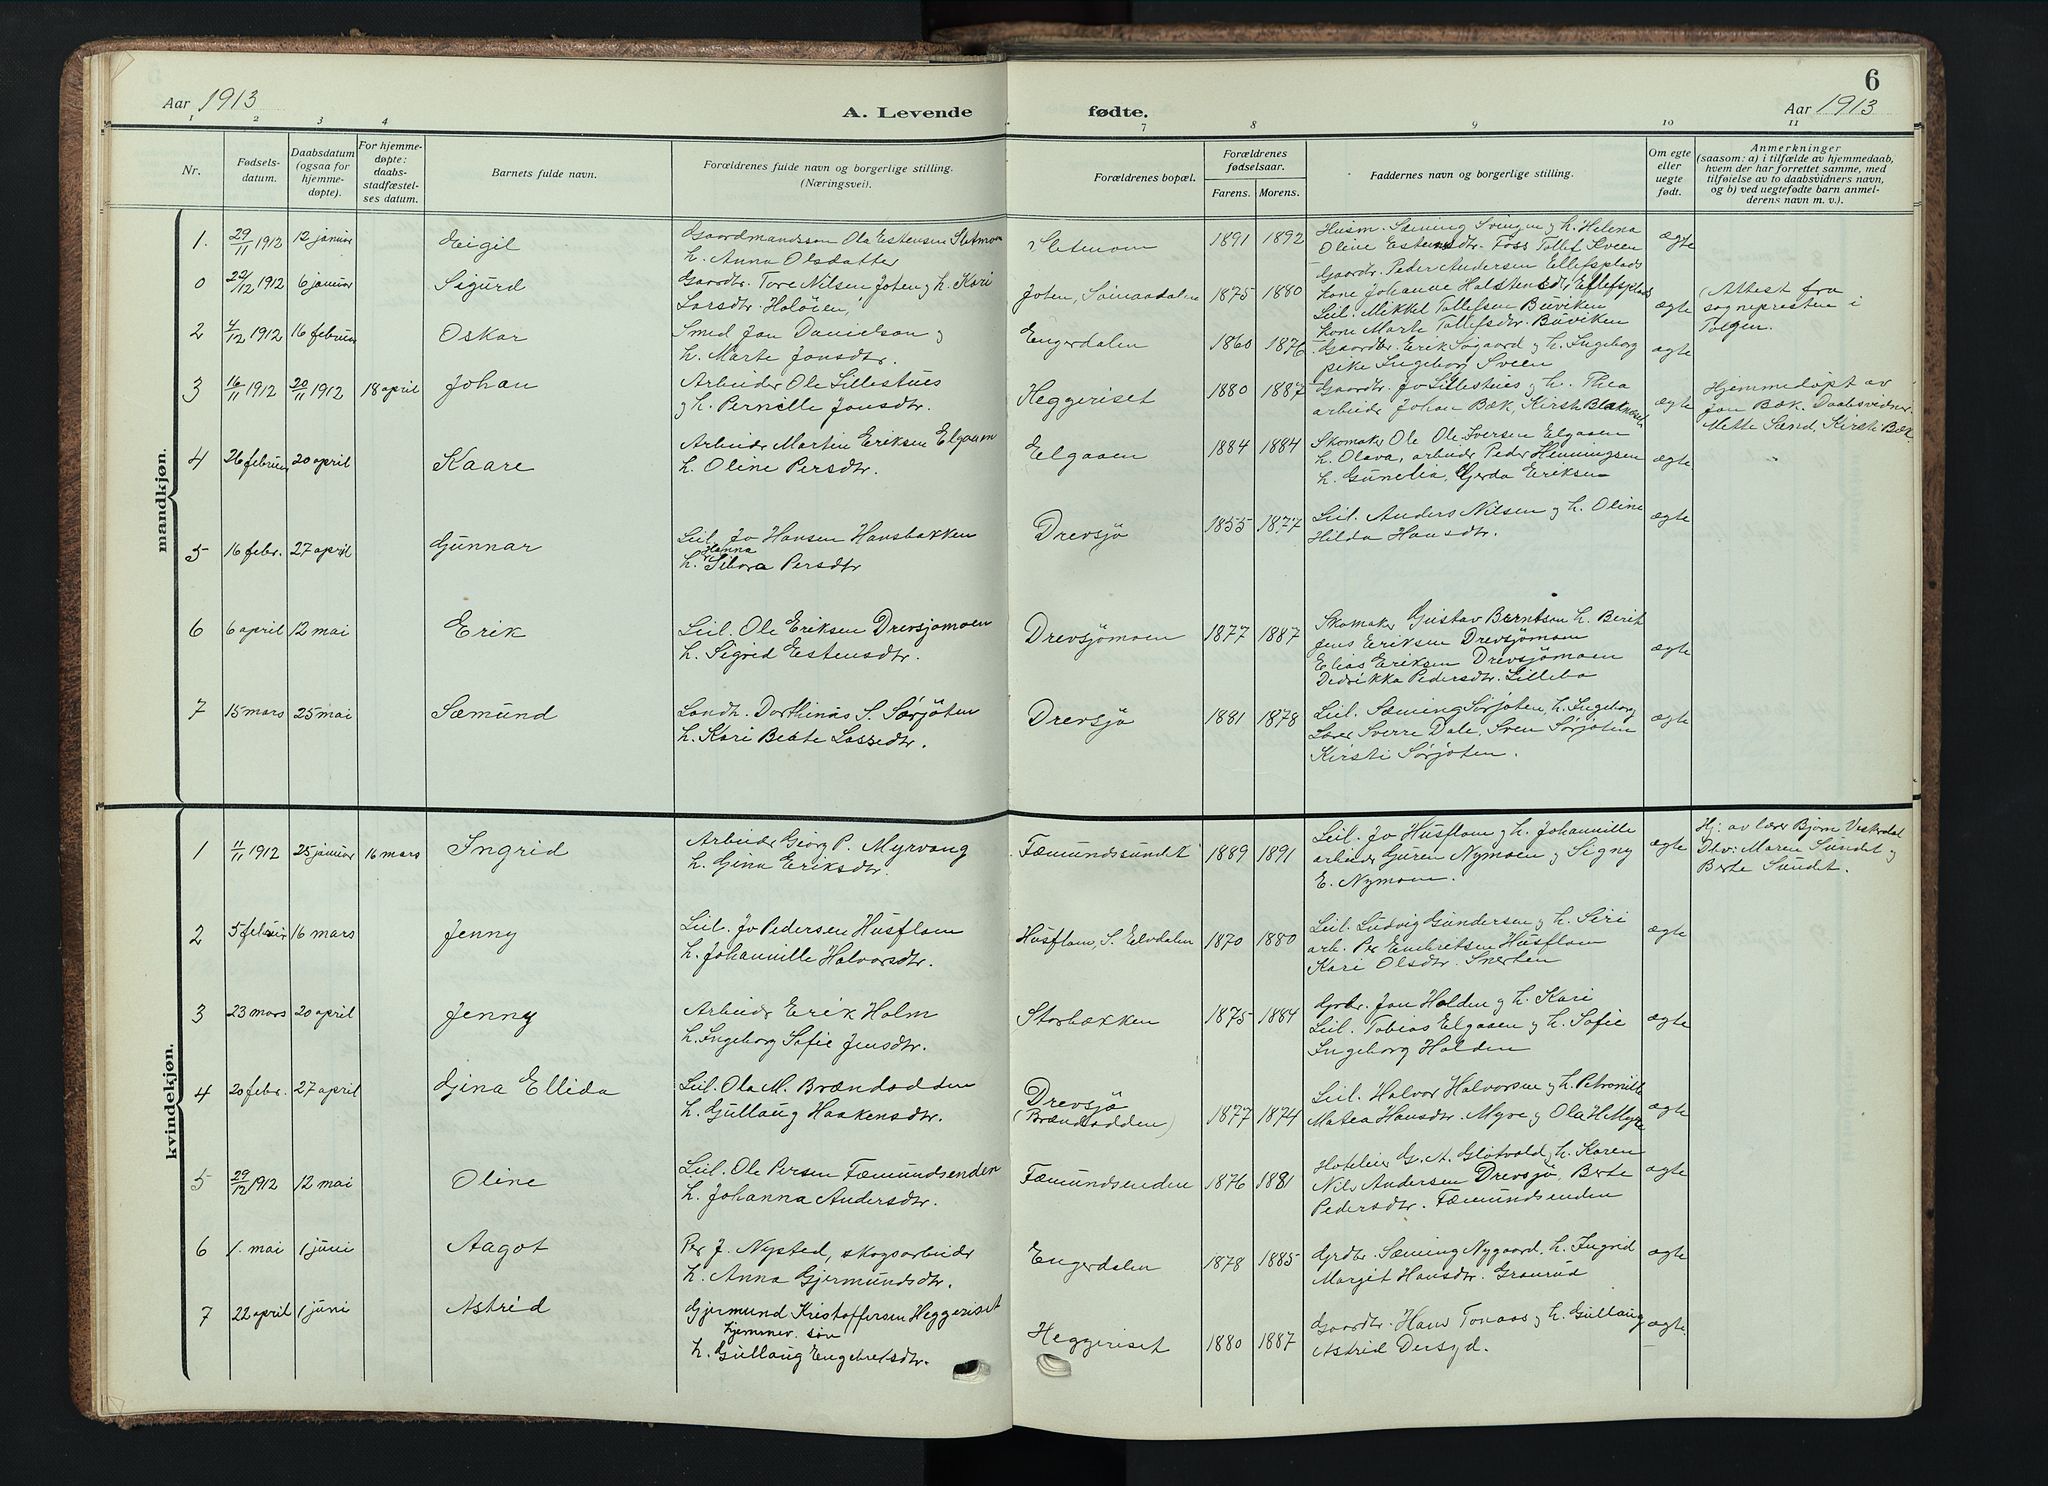 Aar 1913
A. Levende
fødte.
6
Aar 1913
1 2 3 4 7 8 9 10 11
Nr.
Fødselsdatum.
Daabsdatum (ogsaa for hjemmedøpte).
For hjemmedøpte: daabsstadfæstelses datum.
Barnets fulde navn.
Forældrenes fulde navn og borgerlige stilling. (Næringsvei).
Forældrenes bopæl.
Forældrenes fødselsaar.
Farens. Morens.
Faddernes navn og borgerlige stilling.
Om egte eller uegte født.
Anmerkninger
(saasom: a) i tilfælde av hjemmedaab, hvem der har forrettet samme, med tilføielse av to daabsvidners navn, og b) ved uegtefødte barn anmelderens navn m. v.).
mandkjøn.
1. 29/11 1912 12 januar Eigil
Gaardmandssøn Ola Estensen Sletmoen
h. Anna Olsdatter
Sletmoen 1891 1892
Husm. Sæming Svingen og h. Helena
Oline Estensdtr. Foss Tollef Sveen
ægte
0 22/12 1912 6 januar Sigurd
Gaardbr. Tore Nilsen Joten og h. Kari
Larsdtr. Holøien
Joten, Sømaadalen 1875 1880
Gaardbr. Peder Andersen Ellefsplads
kone Johanne Halstensdtr. Ellefsplads
Leil. Mikkel Tollefsen Buviken
kone Marte Tollefsdtr. Buviken
ægte
(Attest fra
sognepresten i
Tolgen.
2 4/12 1912 16 februar Oskar
Smed Jon Danielson og
h. Marte Jonsdtr.
Engerdalen 1860 1876
Gaardbr. Erik Søgaard og h. Ingeborg
pike Ingeborg Sveen
ægte
3 16/11 1912 20/11 1912 18 april Johan
Arbeider Ole Lillestues
og h. Pernelle Jonsdtr.
Heggeriset 1880 1887
Gaardbr. Jo Lillestues og h. Thea
arbeider Johan Bæk, Kirsti Blaknæset
ægte
Hjemmedøpt av
Jon Bæk. Daabsvidner
Mette Sand, Kirsti Bæk
4 26 februar 20 april Kaare
Arbeider Martin Eriksen Elgaaen
h. Oline Persdtr.
Elgaaen 1884 1884
Skomaker Ole Ole Iversen Elgaaen
h. Olava, arbeider Peder Henningsen
h. Gunelia, Gerda Eriksen
ægte
5 16 febr. 27 april Gunnar
Leil. Jo Hansen Hansbakken
h. Hanna Sibora Persdtr
Drevsjø 1855 1877
Leil. Anders Nilsen og h. Oline
Hilda Hansdtr.
ægte
6 6 april 12 mai Erik
Leil. Ole Eriksen Drevsjømoen
h. Sigrid Estensdtr.
Drevsjømoen 1877 1887
Skomaker Gustav Berntsen h. Berit
Jens Eriksen Drevsjømoen
Elias Eriksen Drevsjømoen
Didrikka Pedersdtr. Lillebo
ægte
7 15 mars 25 mai Sæmund
Landh. Dorthinus S. Sørjoten
h. Kari Beate Lassedtr.
Drevsjø 1881 1878
Leil. Sæming Sørjoten, h. Ingeborg
Lærer Sverre Dale, Sven Sørjoten
Kirsti Sørjoten.
ægte
kvindekjøn.
1 11/11 1912 25 januar 16 mars Ingrid
Arbeider Georg P. Myrvang
h. Gina Eriksdtr.
Fæmundssundet 1889 1891
Leil. Jo Husfloen og h. Johanville
arbeider Guren Nymoen og Signy
E. Nymoen.
ægte
Hj. av lærer Bjørn Veslerdal
Dbv: Maren Sundet og
Berte Sundet.
2 5 februar 16 mars Jenny
Leil. Jo Pedersen Husfloen
h. Johanville Halvorsdtr.
Husfloen, S. Elvdalen 1870 1880
Leil. Ludvig Gundersen og h. Siri
arb. Per Embretsen Husfloen
Kari Olsdtr. Snerten
ægte
3 23 mars 20 april Jenny
Arbeider Erik Holm
h. Ingeborg Sofie Jensdtr.
Storbækken 1875 1884
Grdbr. Jon Holden og h. Kari
Leil. Tobias Elgaaen og h. Sofie
Ingeborg Holden
ægte
4 20 febr. 27 april Gina Ellida
Leil. Ola M. Brændodden
h. Gullaug Haakensdtr.
Drevsjø
(Brændodden) 1877 1874
Leil. Halvor Halvorsen og h. Petronille
Matea Hansdtr. Myre og Ola H. Myre
ægte
5 29/12 1912 12 mai Oline
Leil. Ole Persen Fæmundsenden
h. Johanna Andersdtr.
Fæmundsenden 1876 1881
Hoteleier G. A. Gløtvold, h. Karen
Nils Andersen Drevsjø, Berte
Pedersdtr. Fæmundsenden
ægte
6 1. mai 1 juni Aagot
Per J. Nysted, skogsarbeider
h. Anna Gjermundsdtr.
Engerdalen 1878 1885
Grdbr. Sæming Nygaard, h. Ingrid
Margit Hansdtr. Granrud
ægte
7 22 april 1 juni Astrid
Gjermund Kristoffersen Heggeriset
hjemmev. søn
h. Gullaug Engebretsdtr.
Heggeriset 1880 1887
Gaardbr. Hans Tonaas og h. Gullaug
Astrid Dersyd.
ægte